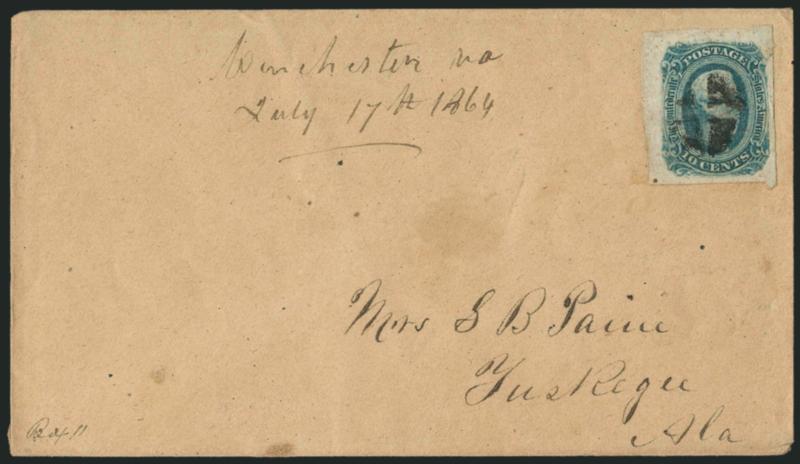 Winchester va
July 17th 1864
POSTAGE
Confederate
States America
10 CENTS
Mrs S B Paine
Tuskegee
Ala